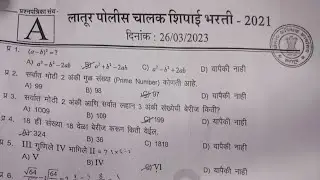 प्रश्नपत्रिका संच
A
लातूर पोलीस चालक शिपाई भरती - 2021
दिनांक : 26/03/2023
प्र 1. (a-b)² = ?
A) a²-b²-2ab B) a²+b²-2ab C) a²+b²+2ab D) यापैकी नाही
प्र 2. सर्वात मोठी 2 अंकी मुळ संख्या (Prime Number) कोणती आहे.
A) 99 B) 98 97 D) यापैकी नाही
प्र 3. सर्वात मोठी 2 अंकी आणि सर्वात लहान 3 अंकी संख्येची बेरीज किती?
A) 1009 B) 109 199 D) यापैकी नाही
प्र 4. 18 ही संख्या 18 वेळा बेरीज करून किती येईल.
324 B) 36 C) 1818 D) यापैकी नाही
प्र 5. III गुणिले IV भागिले II = ?
A) V B) IV VI D) यापैकी नाही
प्र 6. √64